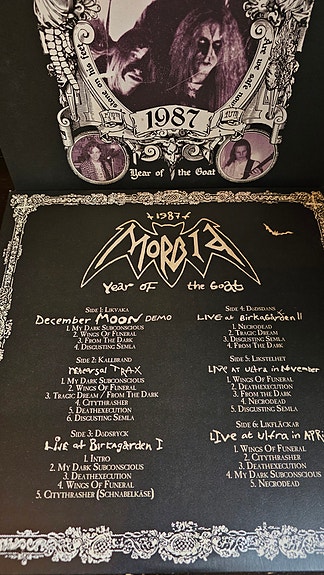 stone on his feet
Are we safe now
1987
Year of the Goat
1987
MORBID
Year of the Goat
Side 1: Likvaka
December Moon demo
1. My Dark Subconscious
2. Wings of Funeral
3. From the Dark
4. Disgusting Semla
Side 2: Kallbrand
Rehearsal TRAX
1. My Dark Subconscious
2. Wings of Funeral
3. Tragic Dream / From the Dark
4. Citythrasher
5. Deathexecution
6. Disgusting Semla
Side 3: Dödsryck
Live at Birkagården I
1. Intro
2. My Dark Subconscious
3. Deathexecution
4. Wings of Funeral
5. Citythrasher (Schnabelkäse)
Side 4: Dödsdans
LIVE at Birkagården II
1. Necrodead
2. Tragic Dream
3. From the Dark
4. Disgusting Semla
Side 5: Likstelhet
Live at Ultra in November
1. Wings of Funeral
2. Deathexecution
3. From the Dark
4. Necrodead
5. Disgusting Semla
Side 6: Likfläckar
LIVE at Ultra in April
1. Wings of Funeral
2. Citythrasher
3. Deathexecution
4. My Dark Subconscious
5. Necrodead